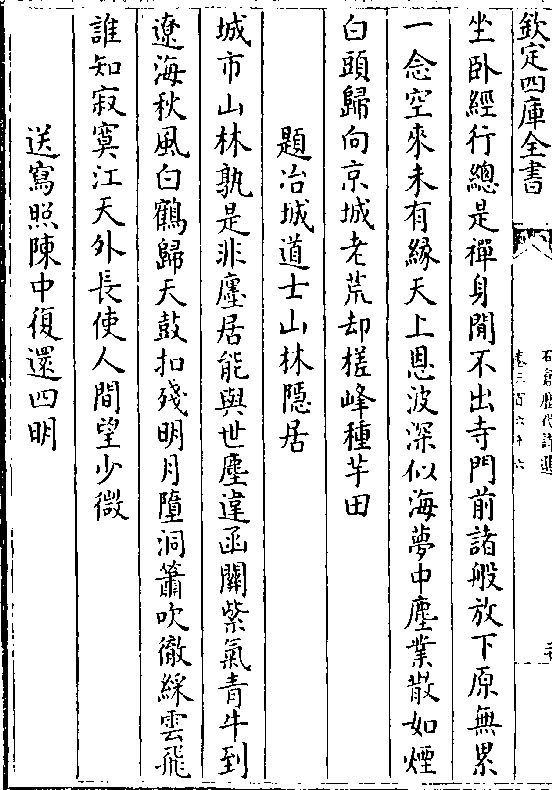 欽定四庫全書
石倉歷代詩選
卷三百六十六
坐臥經行總是禪身閒不出寺門前諸般放下原無累
一念空來未有緣天上恩波深似海夢中塵業散如煙
白頭歸向京城老荒却槎峰種芋田
題冶城道士山林隱居
城市山林孰是非廛居能與世塵違函關紫氣青牛到
遼海秋風白鶴歸天鼓扣殘明月墮洞簫吹徹綵雲飛
誰知寂寞江天外長使人間望少微
送寫照陳中復還四明